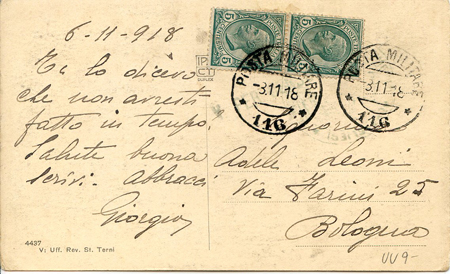 6-11-918
Te lo dicevo
che non avresti
fatto in tempo.
Salute buona
scrivi. Abbracci
Giorgio
4437
Vi Uff. Rev. St. Terni
5 5
POSTA MILITARE
-3.11.18
116
POSTA MILITARE
3.11.18
116
Adele Leoni
Via Farini 25
Bologna
UU9-